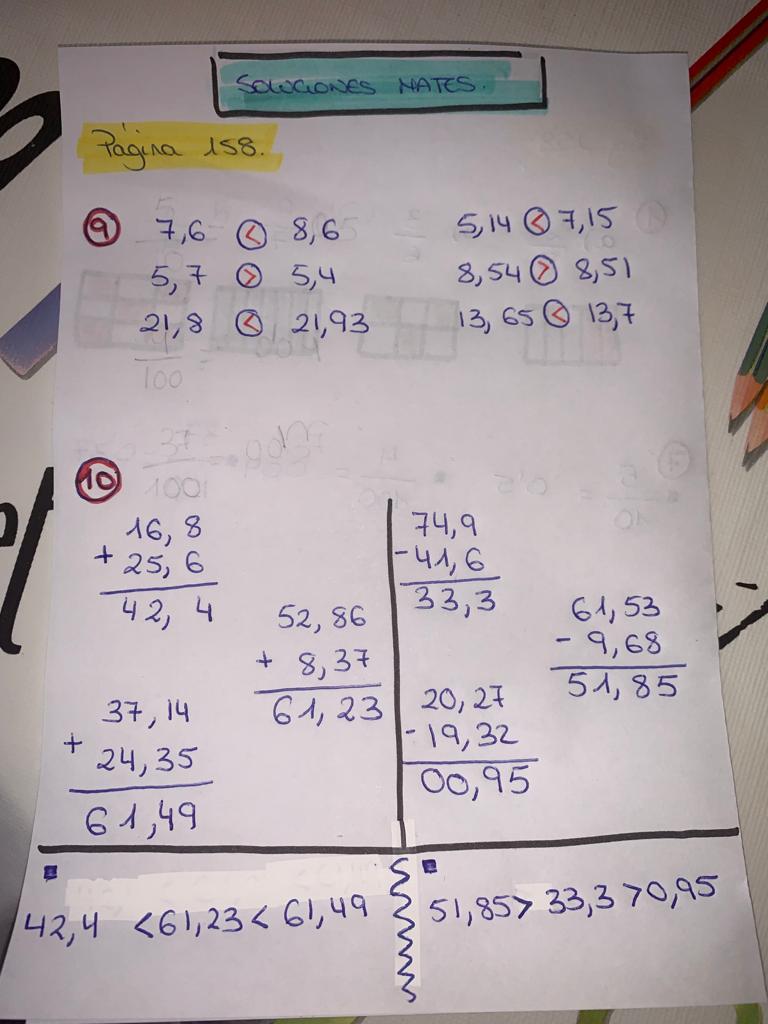 SOLUCIONES MATES.
Página 158.
9 7,6 < 8,6 5,14 < 7,15
5,7 > 5,4 8,54 > 8,51
21,8 < 21,93 13,65 < 13,7
10
16,8
+ 25,6
42,4
52,86
+ 8,37
61,23
37,14
+ 24,35
61,49
74,9
- 41,6
33,3
61,53
- 9,68
51,85
20,27
- 19,32
00,95
42,4 < 61,23 < 61,49
51,85 > 33,3 > 0,95